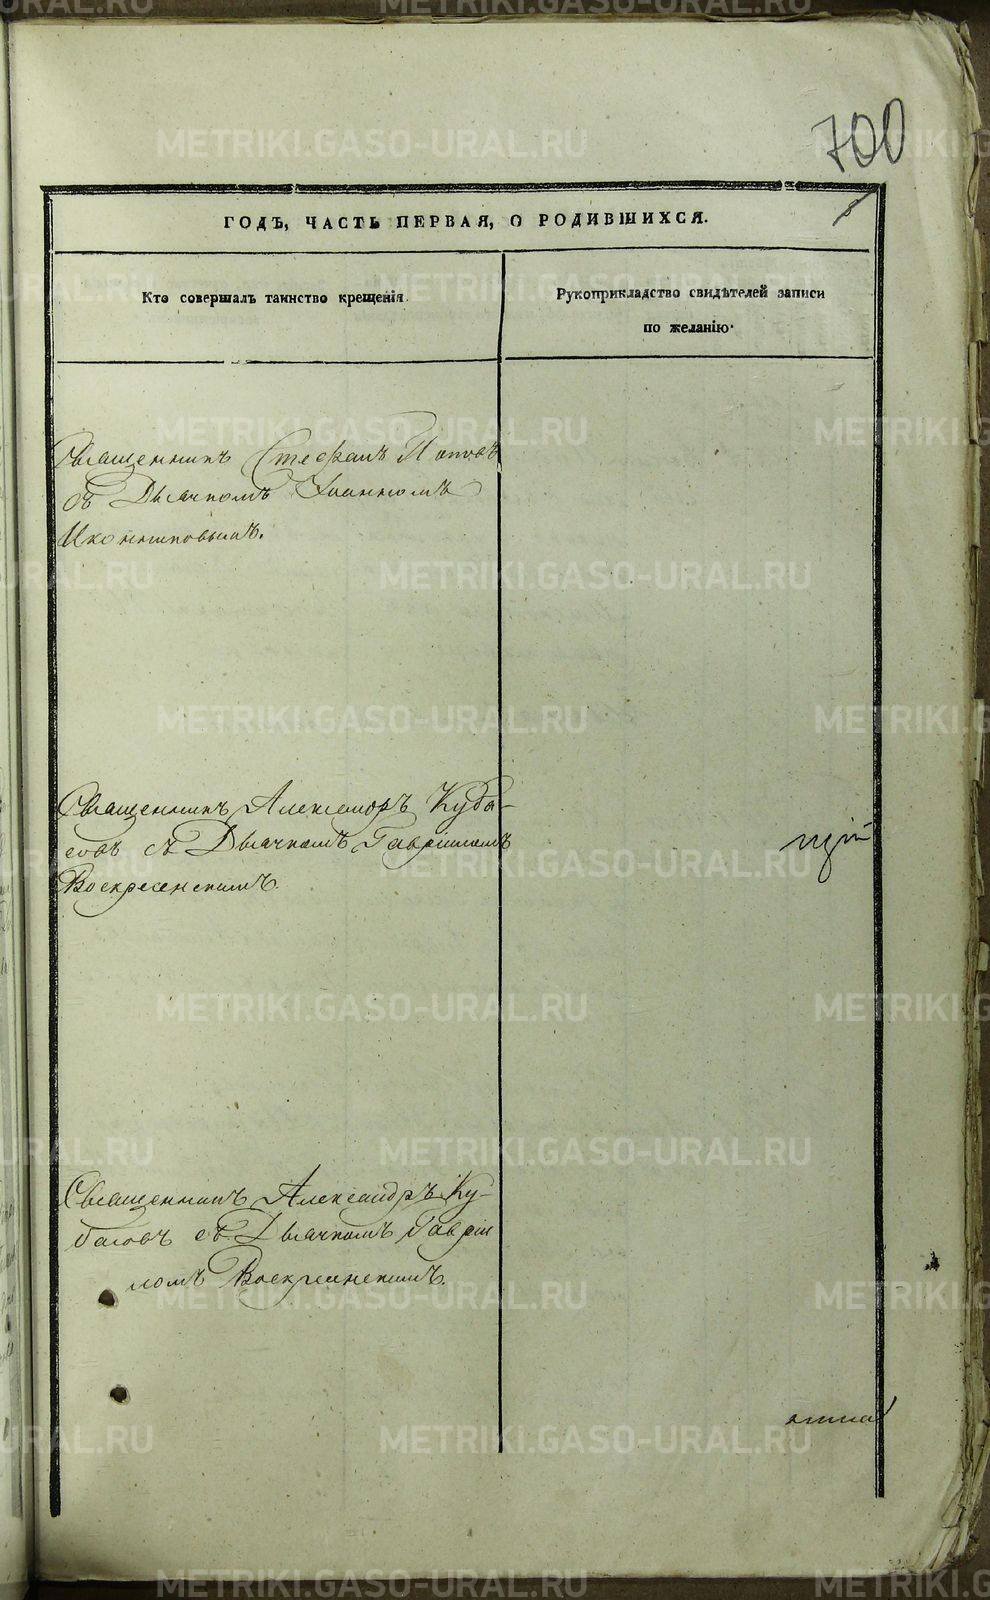 700
ГОДЪ, ЧАСТЬ ПЕРВАЯ, О РОДИВШИХСЯ.
Кто совершалъ таинство крещенія.
Рукоприкладство свидѣтелей записи
по желанію.
Священникъ Стефанъ Поповъ
съ Дьячкомъ Іоанномъ
Иконниковымъ.
Священникъ Александръ Куба-
совъ съ Дьячкомъ Гавріиломъ
Воскресенскимъ.
Священникъ Александръ Ку-
басовъ съ Дьячкомъ Гаврiи
ломъ Воскресенскимъ.
METRIKI.GASO-URAL.RU